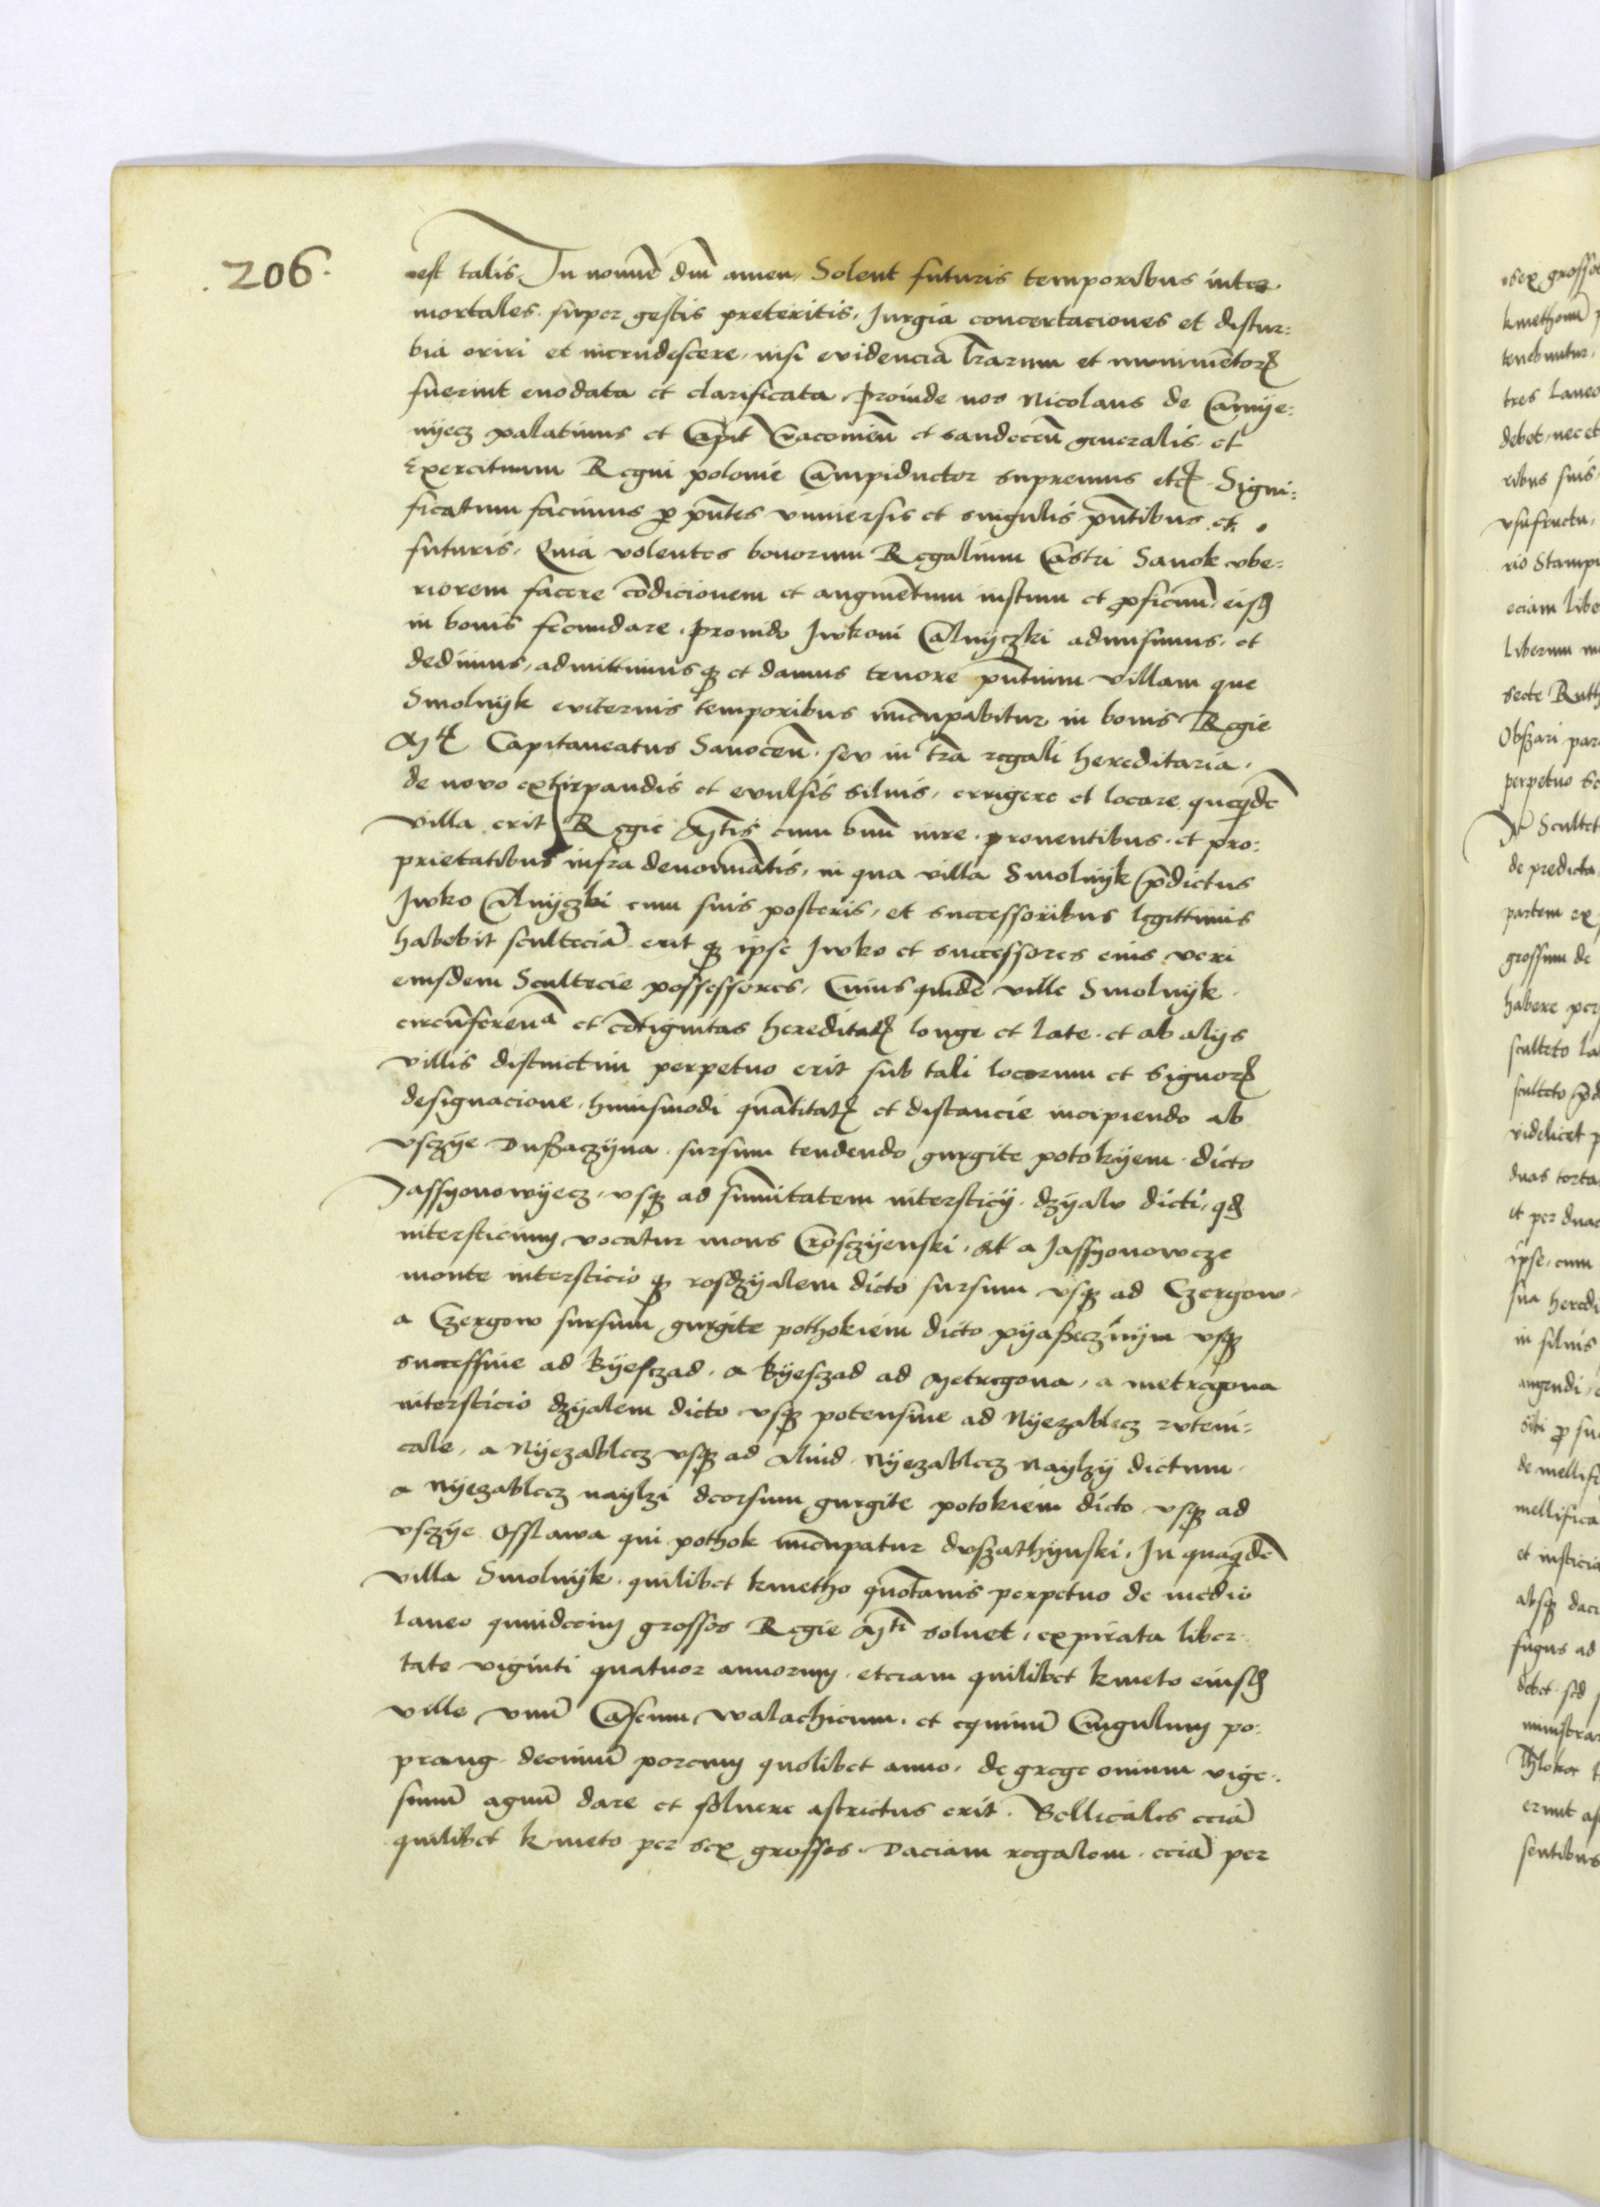 206.
est talis. In nomīe dnī amen. Solent futuris temporibus inter
mortales super gestis preteritis, Jurgia concertaciones et distur:
bia oriri et incrudescere, nisi evidencia lr̄arum et munimentor
fuerint enodata et clarificata. Proinde nos Nicolaus de Camye:
nyecz palatinus et Capit Cracovieñ et sandeceñ generalis et
Exercituum Regni polonie Campiductor supremus etc. Signi:
ficatum facimus p pn̄tes universis et singulis pn̄tibus et
futuris, Quia volentes bonorum Regalium Castri Sanok ube:
riorem facere cōdicionem et augmētum iustum et pficuum eisd
in bonis fecundare. Provido Iwkoni Calnyczki admisimus, et
dedimus, admittimusq et damus tenore pn̄tium villam que
Smolnyk eviternis temporibus nūcupabitur in bonis Regie
Mtis Capitaneatus Sanoceñ, seu in tr̄a regali hereditaria,
de novo extirpandis et evulsis silvis, errigere et locare, quequidē
villa erit Regie Mtis cum om̄i iure, proventibus, et pro:
prietatibus infra denominatis, in qua villa Smolnyk pdictus
Iwko Calnyczki cum suis posteris, et successoribus legittimis
habebit sculteciā erit q ipse Iwko et successores eius veri
eiusdem Scultecie possessores, Cuius quidē ville Smolnyk
circūferenᵃ et cōtiguitas hereditat longe et late, et ab alijs
villis distinctim perpetuo erit sub tali locorum et signor
designacione, huiusmodi quātitat et distancie incipiendo ab
vsczye Dußaczyna sursum tendendo gurgite potokyem dicto
Jassyonowyecz, vsq ad sum̄itatem intersticij dzyalu dicti, qd
intersticium vocatur mons Croſczyenski, et a Jassyonowcze
monte intersticio q rosdzyalem dicto sursum vsq ad Czergow,
a Czergow sursum gurgite pothokiem dicto pyaßecznym vsq
successive ad Byesczad, a Byesczad ad Metregona, a metregona
intersticio dzyalem dicto vsq potensive ad Nyezablecz ruteni:
cale, a Nyezablecz vsq ad aliud Nyezablecz Naylzy dictum.
a Nyezablecz naylzi deorsum gurgite potokiem dicto vsq ad
vsczye Osslawa qui pothok nūcupatur dußathynski, In quaqdē
villa Smolnyk, quilibet kmetho quotanis perpetuo de medio
laneo quindecim grossos Regie Mti solvet, expirata liber:
tate viginti quatuor annorum, eteciam quilibet kmeto eiusd
ville vnū Caseum walachicum, et equinū Cingulum po:
prang decimū porcum quolibet anno, de grege ovium vige:
simū agnū dare et solvere astrictus erit. Bellicales eciā
quilibet kmeto per sex grossos. Daciam regalem eciā per